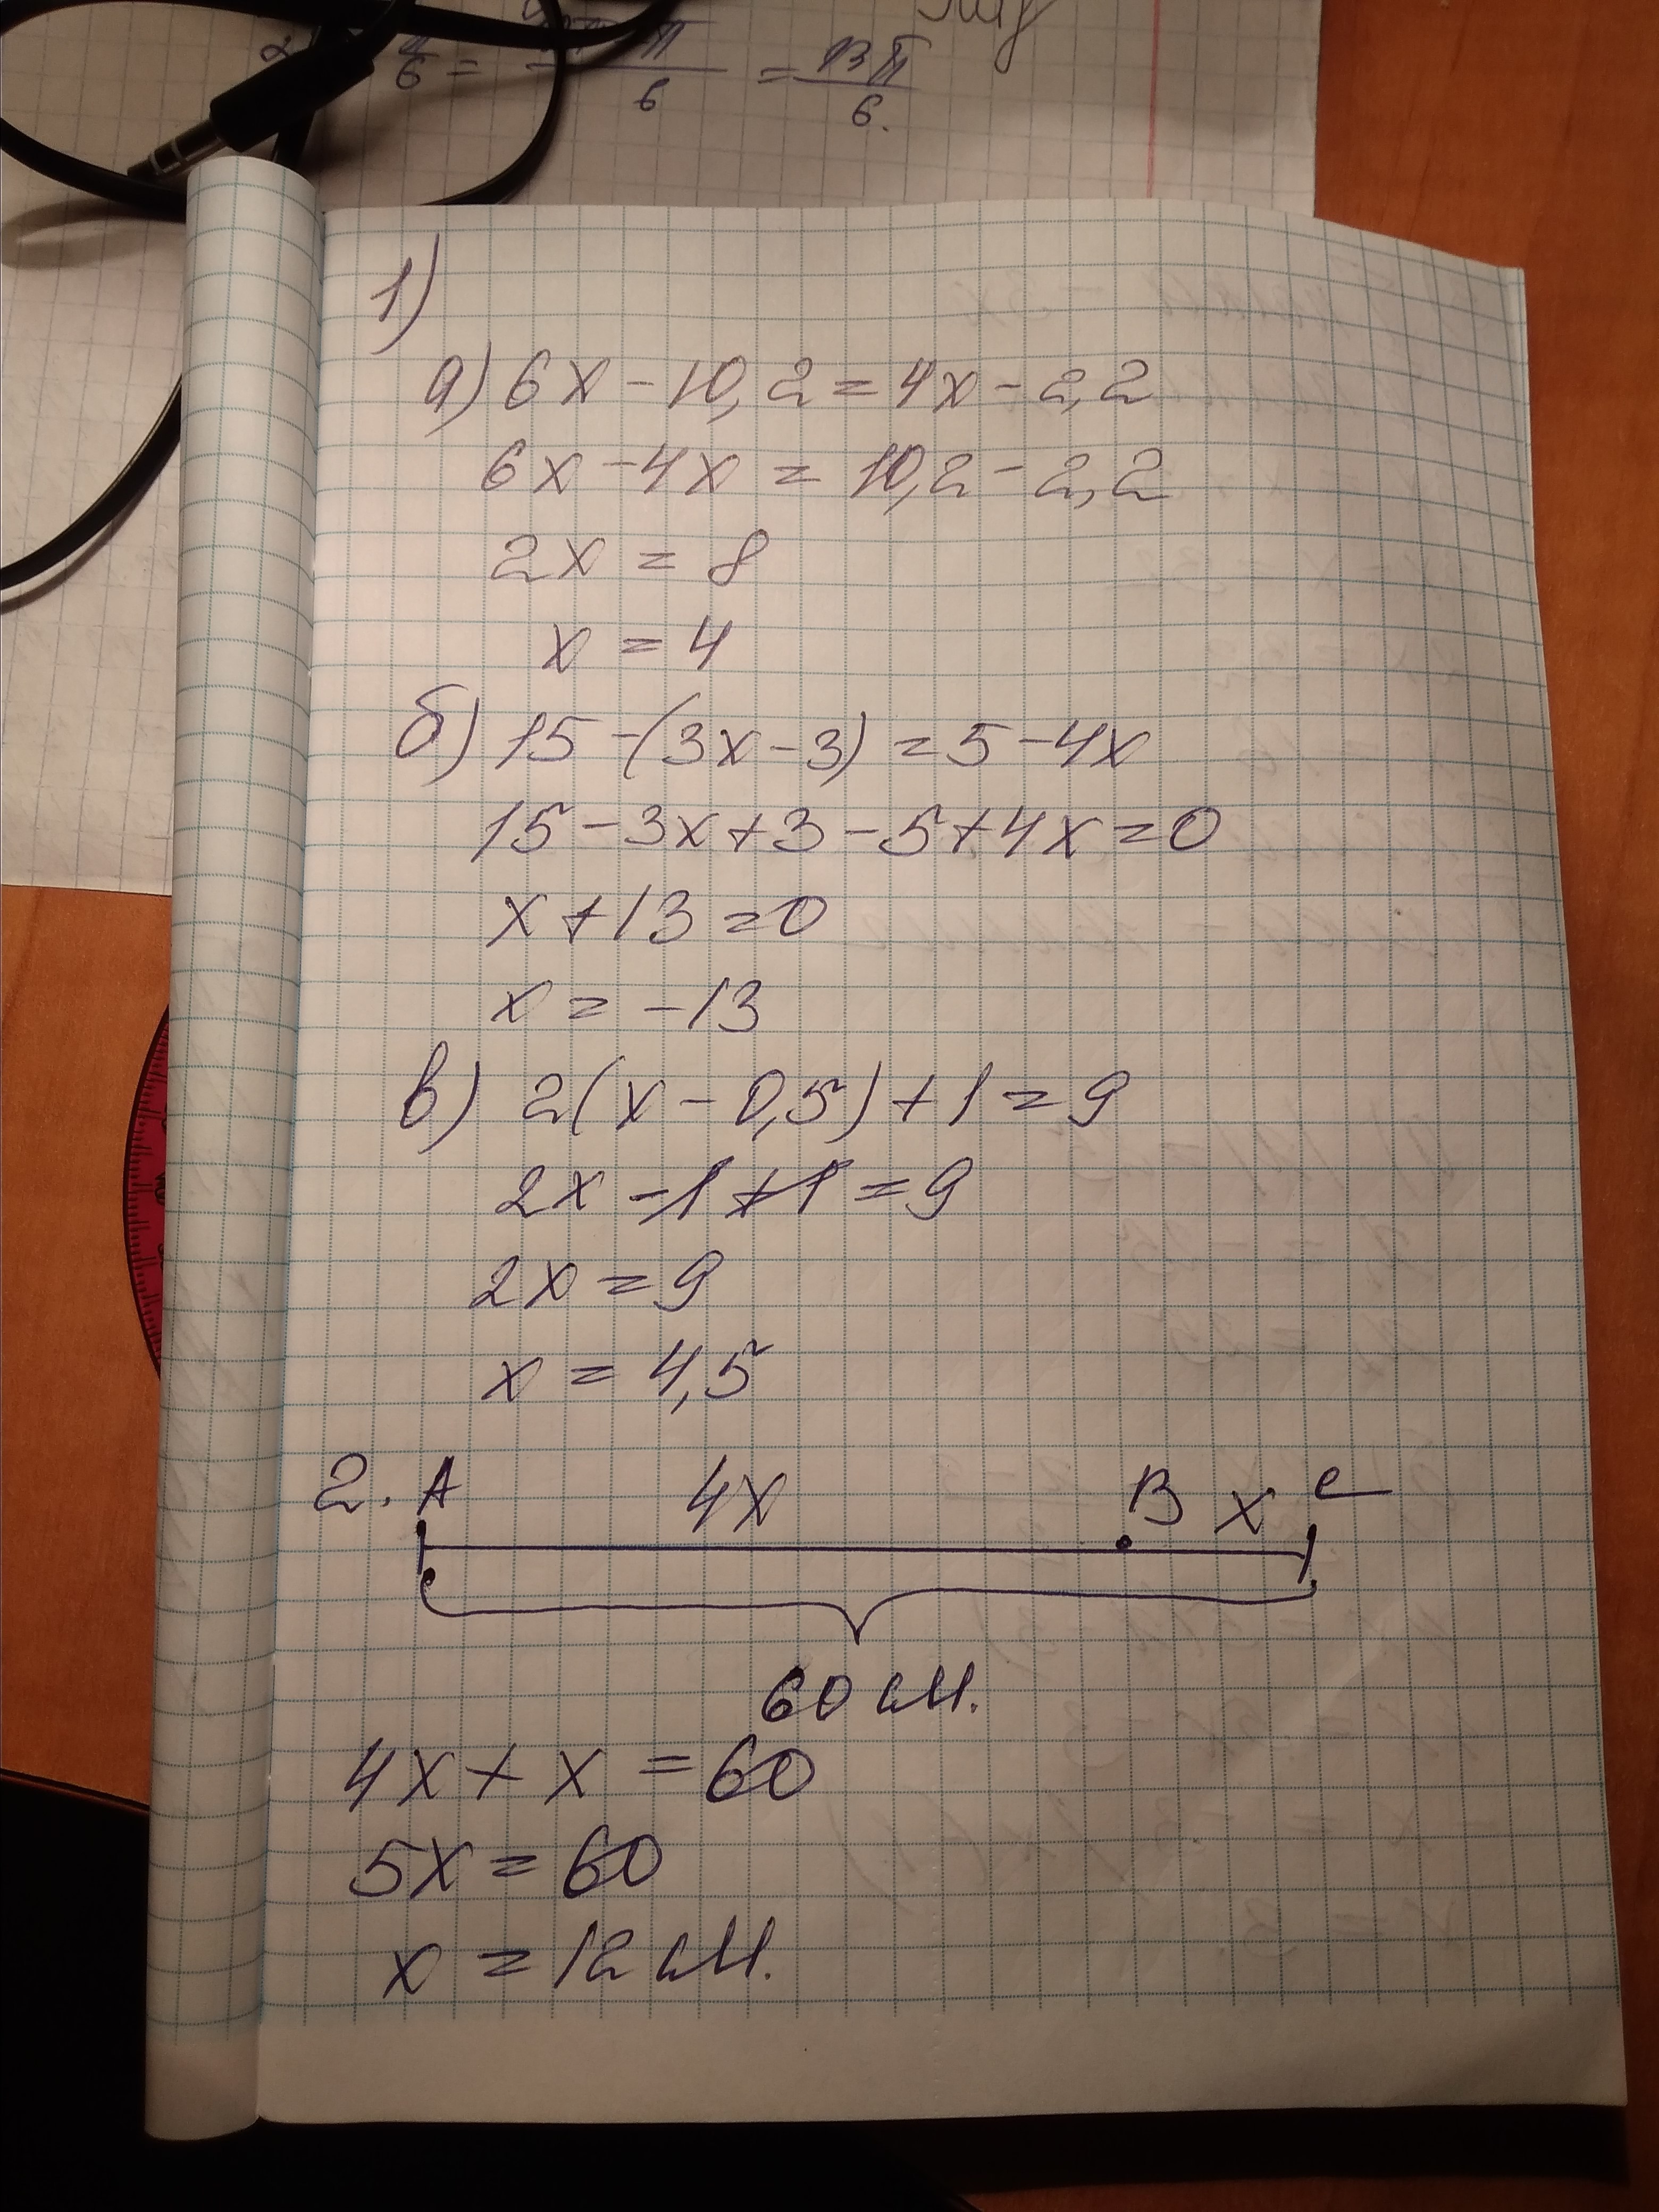 = 6 = 13π
6 6.
1)
а) 6x - 10,2 = 4x - 2,2
6x - 4x = 10,2 - 2,2
2x = 8
x = 4
б) 15 - (3x - 3) = 5 - 4x
15 - 3x + 3 - 5 + 4x = 0
x + 13 = 0
x = -13
в) 2(x - 0,5) + 1 = 9
2x - 1 + 1 = 9
2x = 9
x = 4,5
2. A 4x B x C
60 см.
4x + x = 60
5x = 60
x = 12 см.